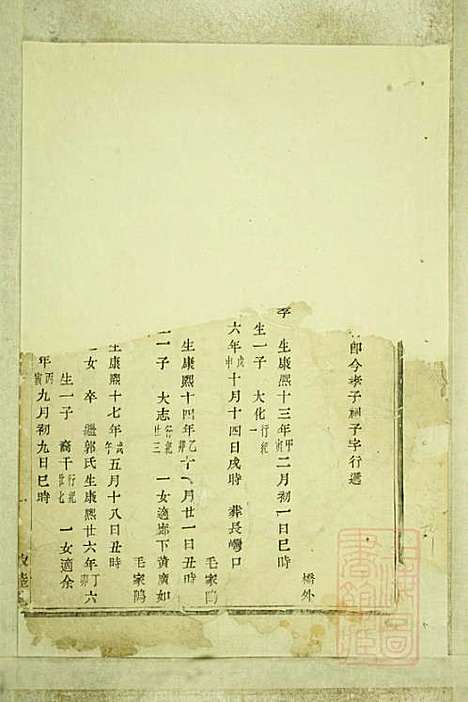 即今孝子祠子字行遷
橋外
李 生康熙十三年甲寅二月初一日巳時
生一子 大化行紀一
六年戊申十月十四日戌時 葬長灣口
毛家鴫
生康熙十四年乙卯十一月廿一日丑時
一子 大志行紀廿三 一女適廊下黃廣如
毛家鴫
生康熙十七年戊午五月十八日丑時
女 卒 繼郭氏生康熙廿六年丁卯六
生一子 裔干行紀廿七 一女適余
年丙寅九月初九日巳時